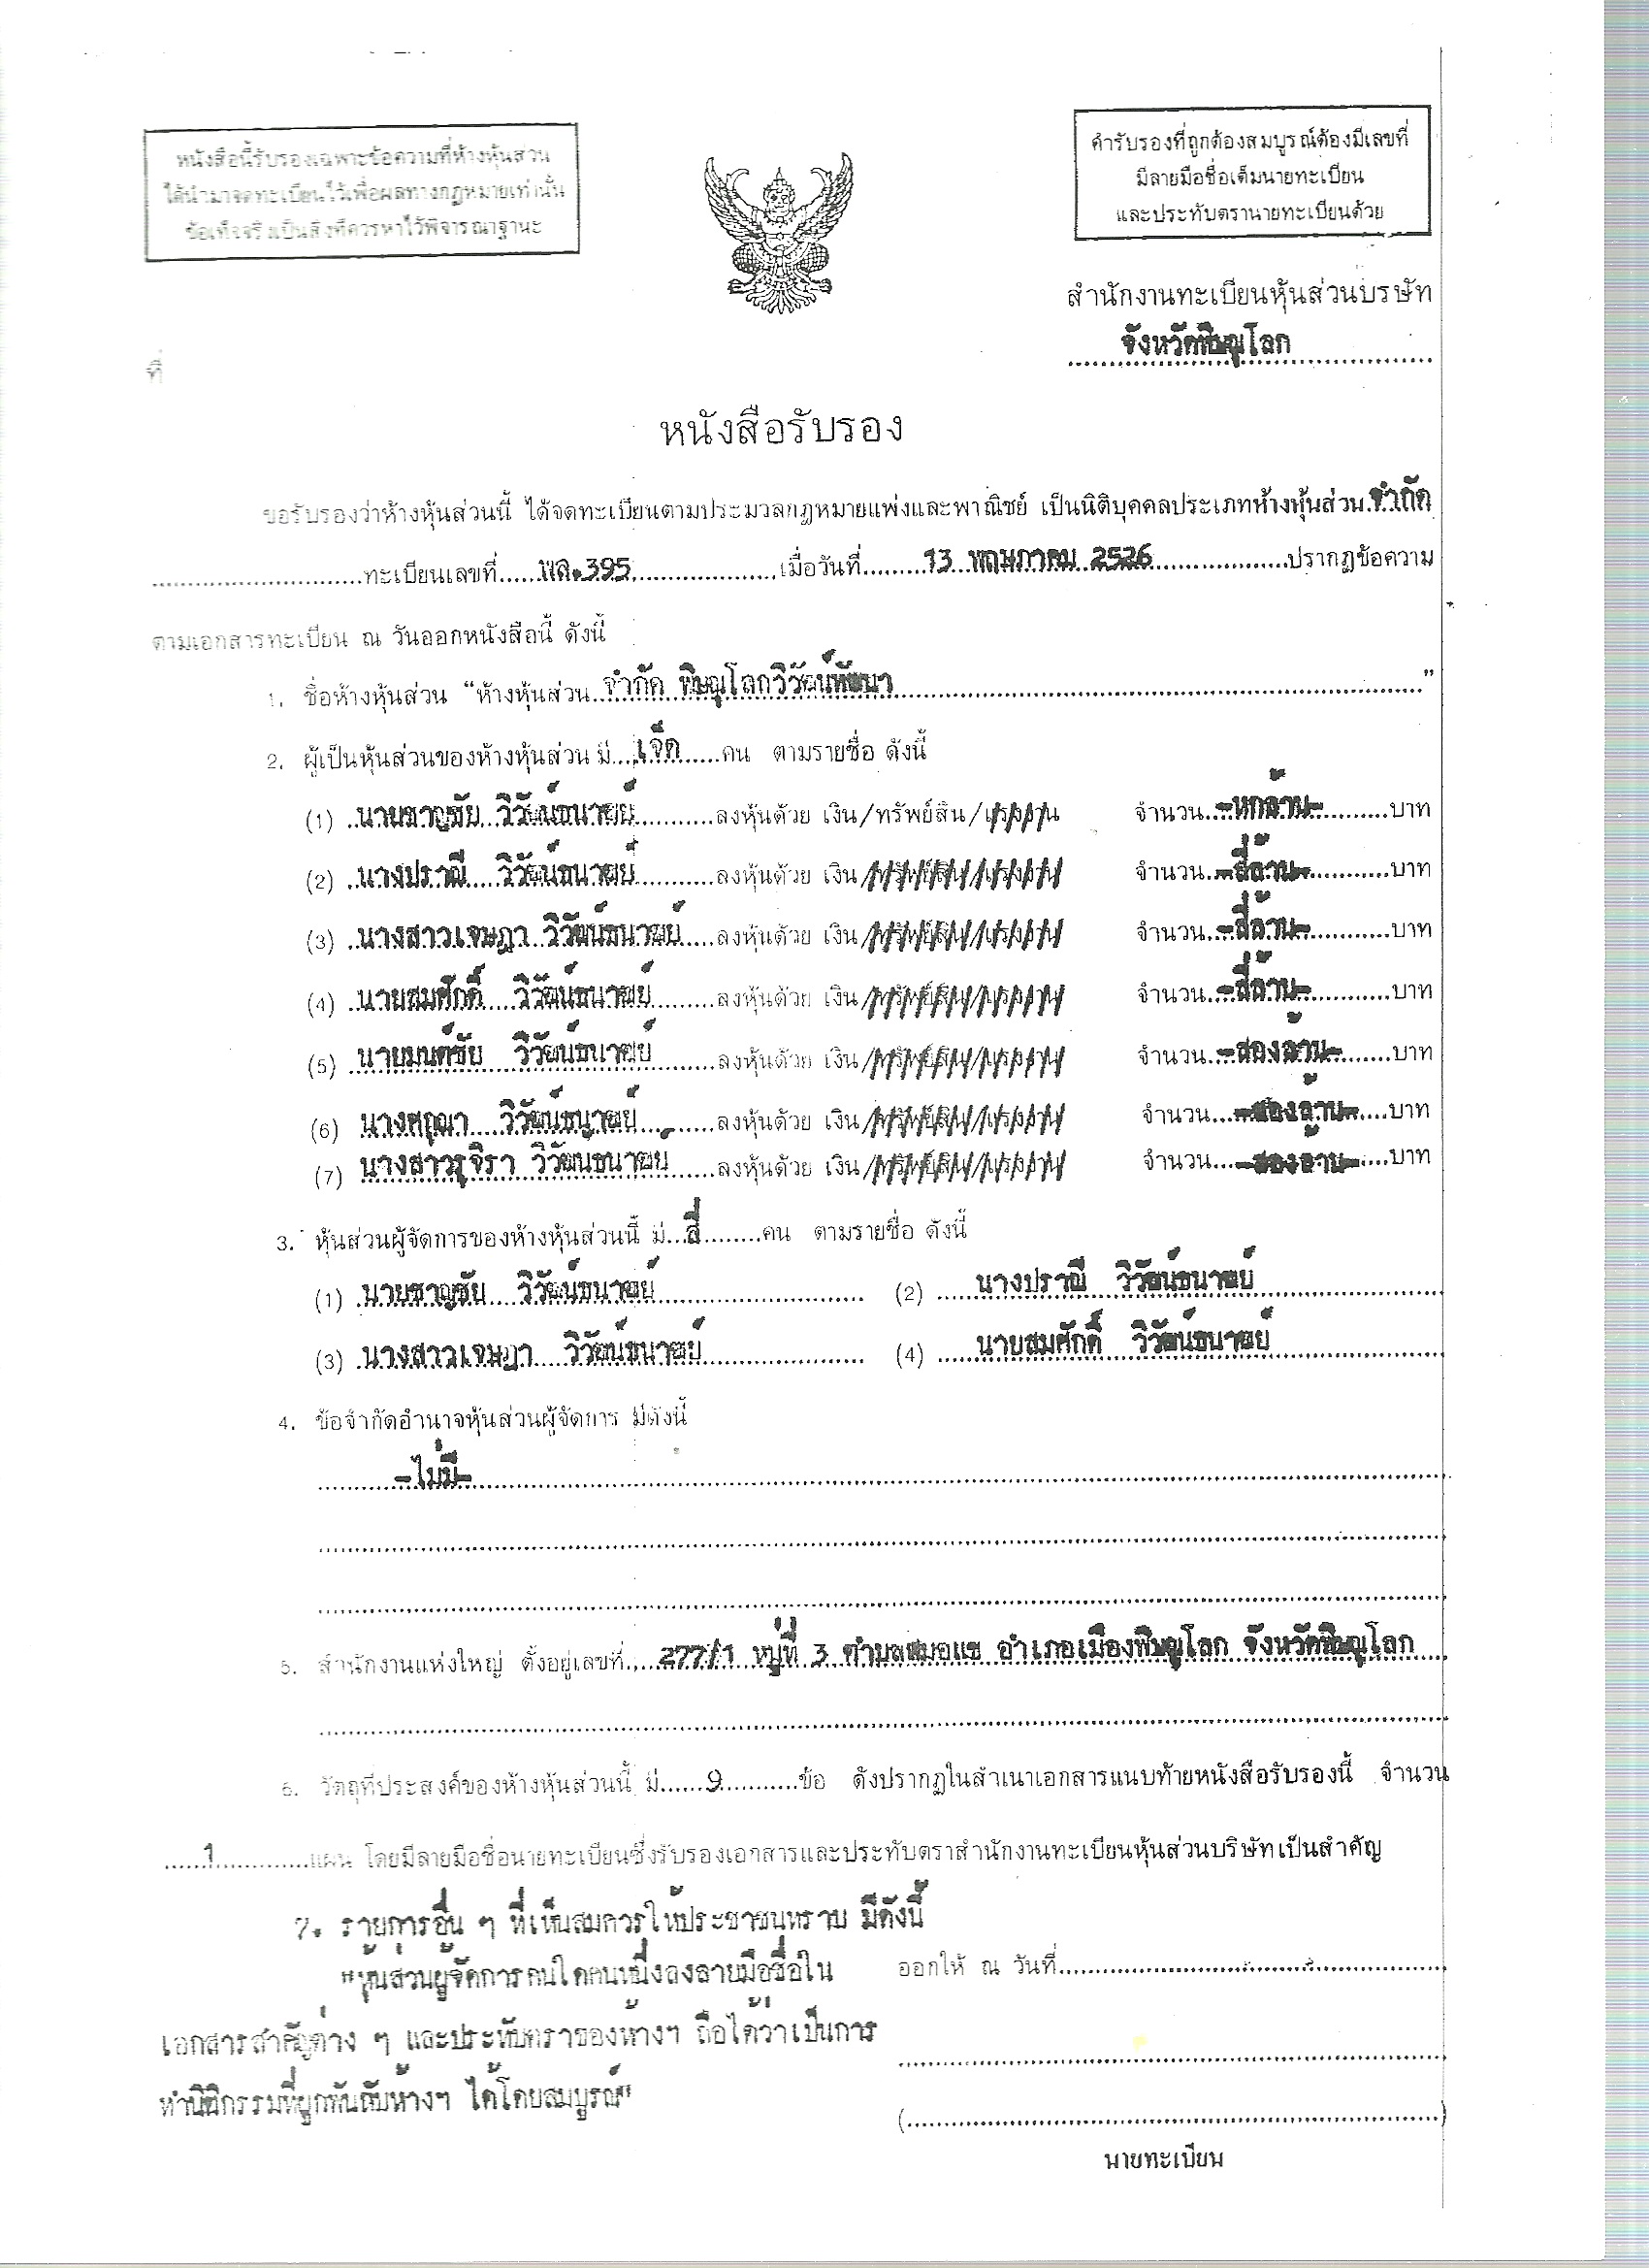 หนังสือนี้รับรองเฉพาะข้อความที่ห้างหุ้นส่วน
ได้นำมาจดทะเบียนไว้เพื่อผลทางกฎหมายเท่านั้น
ข้อเท็จจริงเป็นสิ่งที่ควรหาไว้พิจารณาฐานะ
คำรับรองที่ถูกต้องสมบูรณ์ต้องมีเลขที่
มีลายมือชื่อเต็มนายทะเบียน
และประทับตรานายทะเบียนด้วย
สำนักงานทะเบียนหุ้นส่วนบริษัท
จังหวัดพิษณุโลก
ที่
หนังสือรับรอง
ขอรับรองว่าห้างหุ้นส่วนนี้ ได้จดทะเบียนตามประมวลกฎหมายแพ่งและพาณิชย์ เป็นนิติบุคคลประเภทห้างหุ้นส่วน จำกัด
ทะเบียนเลขที่ พล.395 เมื่อวันที่ 13 พฤษภาคม 2526 ปรากฏข้อความ
ตามเอกสารทะเบียน ณ วันออกหนังสือนี้ ดังนี้
1. ชื่อห้างหุ้นส่วน "ห้างหุ้นส่วน จำกัด พิษณุโลกวิวัฒน์พัฒนา"
2. ผู้เป็นหุ้นส่วนของห้างหุ้นส่วน มี เจ็ด คน ตามรายชื่อ ดังนี้
(1) นายชาญชัย วิวัฒน์ธนาฒย์ ลงหุ้นด้วย เงิน/ทรัพย์สิน/แรงงาน จำนวน -หกล้าน- บาท
(2) นางปราณี วิวัฒน์ธนาฒย์ ลงหุ้นด้วย เงิน/ทรัพย์สิน/แรงงาน จำนวน -สี่ล้าน- บาท
(3) นางสาวเจษฎา วิวัฒน์ธนาฒย์ ลงหุ้นด้วย เงิน/ทรัพย์สิน/แรงงาน จำนวน -สี่ล้าน- บาท
(4) นายสมศักดิ์ วิวัฒน์ธนาฒย์ ลงหุ้นด้วย เงิน/ทรัพย์สิน/แรงงาน จำนวน -สี่ล้าน- บาท
(5) นายมนต์ชัย วิวัฒน์ธนาฒย์ ลงหุ้นด้วย เงิน/ทรัพย์สิน/แรงงาน จำนวน -สองล้าน- บาท
(6) วิวัฒน์ธนาฒย์ ลงหุ้นด้วย เงิน/ทรัพย์สิน/แรงงาน จำนวน -สองล้าน- บาท
(7) นางสาวรุจิรา วิวัฒน์ธนาฒย์ ลงหุ้นด้วย เงิน/ทรัพย์สิน/แรงงาน จำนวน -สองล้าน- บาท
3. หุ้นส่วนผู้จัดการของห้างหุ้นส่วนนี้ มี สี่ คน ตามรายชื่อ ดังนี้
(1) นายชาญชัย วิวัฒน์ธนาฒย์ (2) นางปราณี วิวัฒน์ธนาฒย์
(3) นางสาวเจษฎา วิวัฒน์ธนาฒย์ (4) นายสมศักดิ์ วิวัฒน์ธนาฒย์
4. ข้อจำกัดอำนาจหุ้นส่วนผู้จัดการ มีดังนี้
-ไม่มี-
5. สำนักงานแห่งใหญ่ ตั้งอยู่เลขที่ 277/1 หมู่ที่ 3 ตำบลสมอแข อำเภอเมืองพิษณุโลก จังหวัดพิษณุโลก
6. วัตถุที่ประสงค์ของห้างหุ้นส่วนนี้ มี 9 ข้อ ดังปรากฏในสำเนาเอกสารแนบท้ายหนังสือรับรองนี้ จำนวน
1 แผ่น โดยมีลายมือชื่อนายทะเบียนซึ่งรับรองเอกสารและประทับตราสำนักงานทะเบียนหุ้นส่วนบริษัทเป็นสำคัญ
7. รายการอื่น ๆ ที่เห็นสมควรให้ประชาชนทราบ มีดังนี้
"หุ้นส่วนผู้จัดการคนใดคนหนึ่งลงลายมือชื่อใน
เอกสารสำคัญต่าง ๆ และประทับตราของห้างฯ ถือได้ว่าเป็นการ
ทำนิติกรรมที่ผูกพันกับห้างฯ ได้โดยสมบูรณ์"
ออกให้ ณ วันที่
(
)
นายทะเบียน